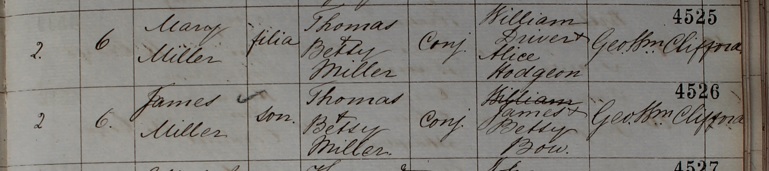 4525
2. 6 Mary Miller filia Thomas + Betsy Miller Conj. William Driver + Alice Hodgeon Geo. Wm. Clifford
4526
2 6. James Miller son. Thomas + Betsy Miller. Conj. William James + Betsy Bow. Geo. Wm. Clifford
4527